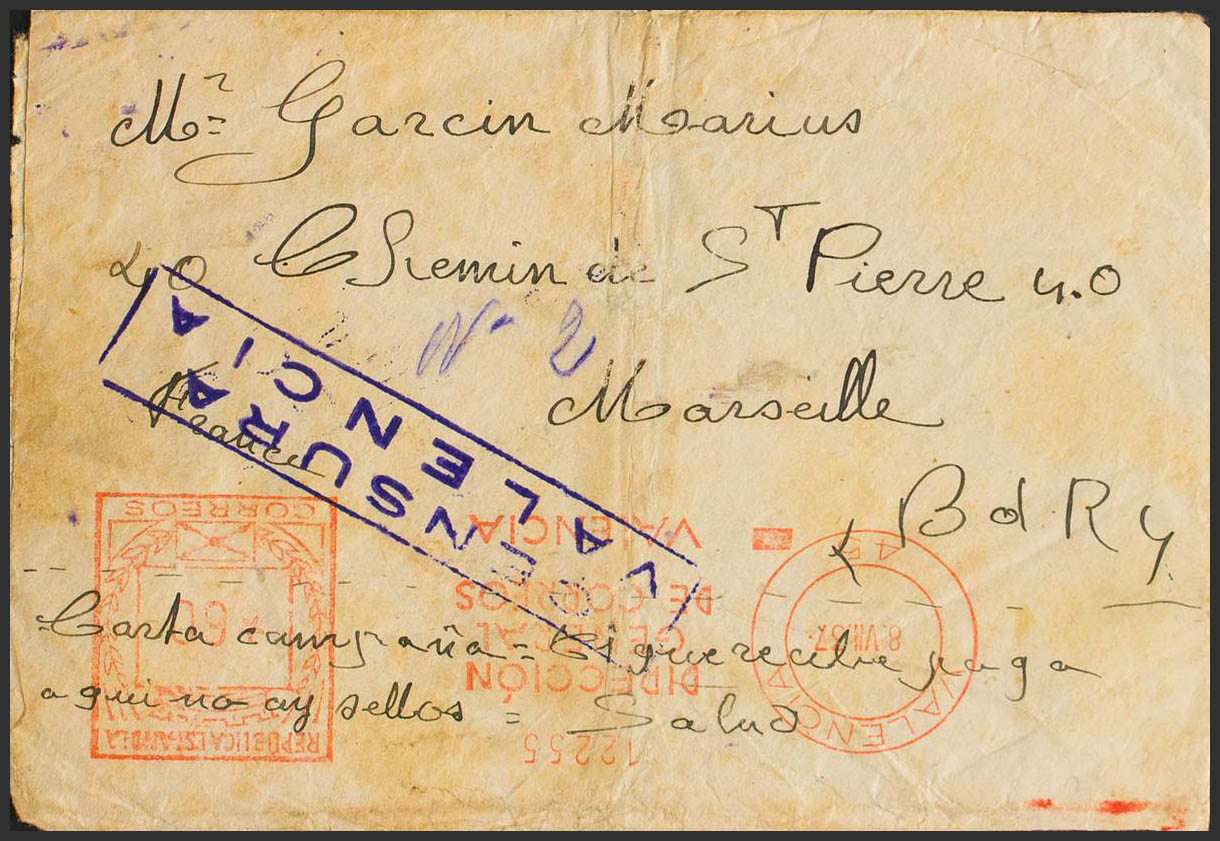 Mr= Garcin Marius
40 Chemin de ST Pierre 40
Nº 2
Marseille
France
BdRy
CENSURA
VALENCIA
CORREOS
REPUBLICA ESPAÑOLA
12255
DIRECCIÓN
GENERAL
DE CORREOS
VALENCIA
VALENCIA
8.VII.37.
Carta campaña = El que recibe paga
aqui no ay sellos = Salud